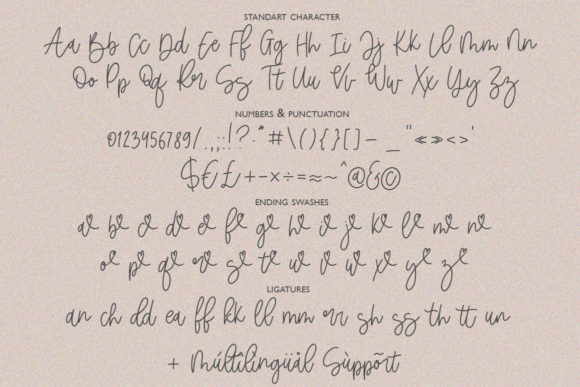 STANDART CHARACTER
Aa Bb Cc Dd Ee Ff Gg Hh Ii Jj Kk Ll Mm Nn
Oo Pp Qq Rr Ss Tt Uu Vv Ww Xx Yy Zz
NUMBERS & PUNCTUATION
0123456789/.,;:!?·*#\(){}[]-_"«»<>'
$€£+-×÷=≈~^@&©
ENDING SWASHES
a b c d e f g h i j k l m n
o p q r s t u v w x y z
LIGATURES
an ch dd ea ff kk ll mm rr sh ss th tt un
+ Múltîlingüål Sùppõrt